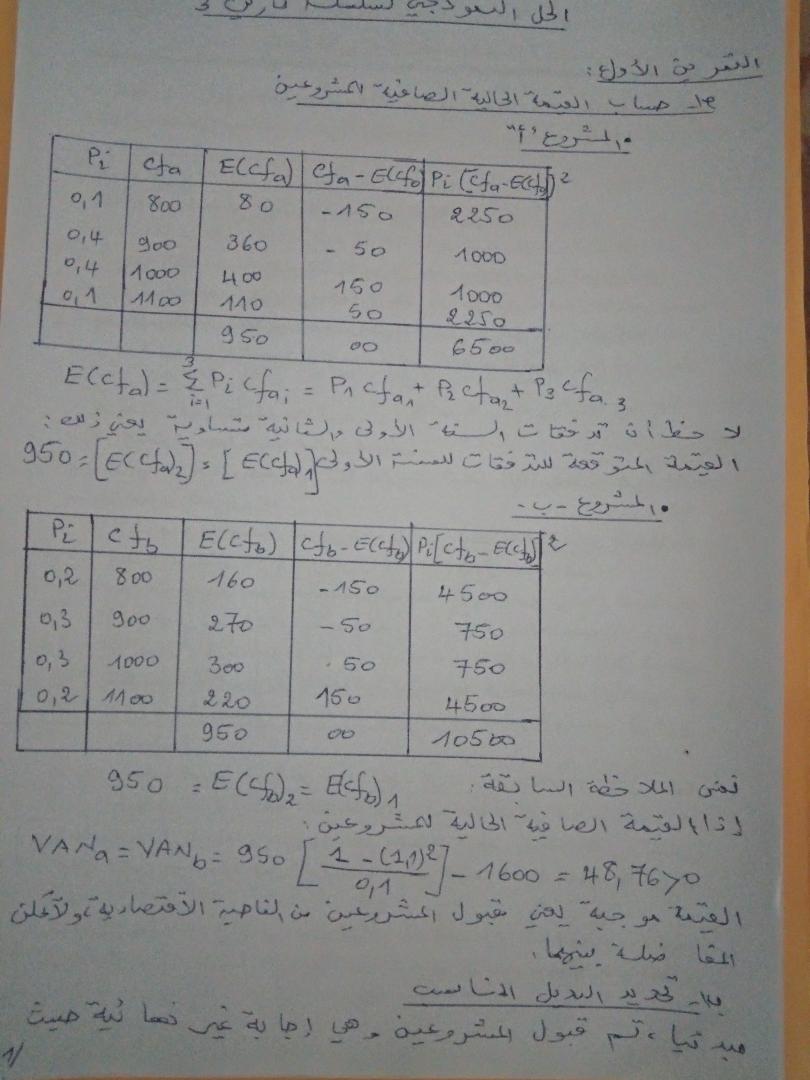 الحل النموذجي لسلسلة تمارين 3
التمرين الأول:
1- حساب القيمة الحالية الصافية للمشروعين
• المشروع "أ"
Pi Cfa E(Cfa) Cfa - E(Cfa) Pi (Cfa-E(Cfa))²
0,1 800 80 -150 2250
0,4 900 360 - 50 1000
0,4 1000 400 150 1000
0,1 1100 110 50 2250
950 00 6500
E(Cfa) = 3Σi=1 Pi Cfai = P1 Cfa1 + P2 Cfa2 + P3 Cfa.3
لاحظ أن تدفقات السنة الأولى والثانية متساوية يعني ذلك:
القيمة المتوقعة للتدفقات للسنة الأولى [E(Cfa)1] = [E(Cfa)2] = 950
• المشروع - ب -
Pi Cfb E(Cfb) Cfb - E(Cfb) Pi[Cfb - E(Cfb)]²
0,2 800 160 -150 4500
0,3 900 270 - 50 750
0,3 1000 300 50 750
0,2 1100 220 150 4500
950 00 10500
نفس الملاحظة السابقة: E(Cfb)1 = E(Cfb)2 = 950
إذا القيمة الصافية الحالية للمشروعين:
VANa = VANb = 950 [1 - (1,1)²/0,1] - 1600 = 48,76>0
القيمة موجبة يعني مقبول المشروعين من الناحية الاقتصادية، ولا يمكن
المفاضلة بينهما.
2- تحديد البديل المناسب
مبدئيا، تم قبول المشروعين، وهي إجابة غير نهائية حيث
1/